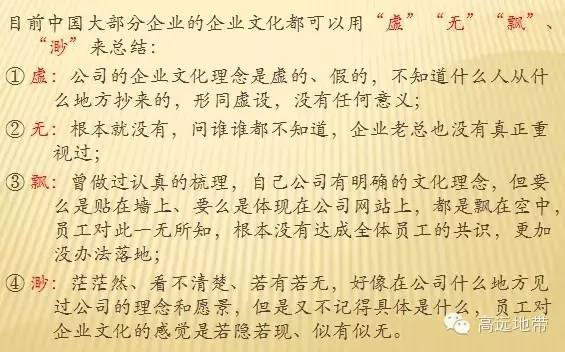 目前中国大部分企业的企业文化都可以用“虚”“无”“飘”、
“渺”来总结：
① 虚：公司的企业文化理念是虚的、假的，不知道什么人从什
么地方抄来的，形同虚设，没有任何意义；
② 无：根本就没有，问谁谁都不知道，企业老总也没有真正重
视过；
③ 飘：曾做过认真的梳理，自己公司有明确的文化理念，但要
么是贴在墙上、要么是体现在公司网站上，都是飘在空中，
员工对此一无所知，根本没有达成全体员工的共识，更加
没办法落地；
④ 渺：茫茫然、看不清楚、若有若无，好像在公司什么地方见
过公司的理念和愿景，但是又不记得具体是什么，员工对
企业文化的感觉是若隐若现、似有似无。
高远地带